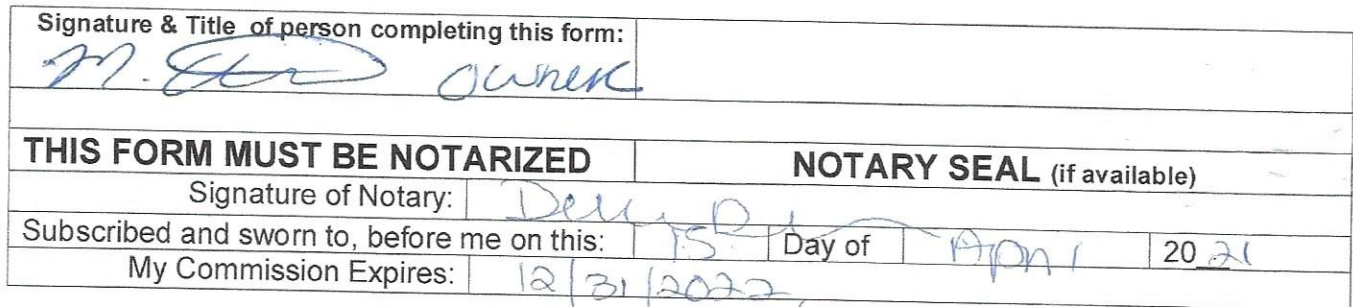 Signature & Title of person completing this form:
M. owner
THIS FORM MUST BE NOTARIZED NOTARY SEAL (if available)
Signature of Notary:
Subscribed and sworn to, before me on this: 15 Day of April 20 21
My Commission Expires: 12/31/2022